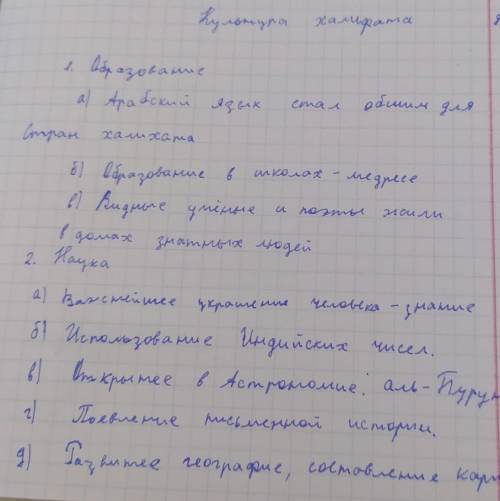 Культура халифата
1. Образование
а) Арабский язык стал общим для
стран халихата
б) Образование в школах - медресе
в) Видные учёные и поэты жили
в домах знатных людей
2. Наука
а) Важнейшее украшение человека - знание
б) Использование Индийских чисел.
в) Открытее в Астрономие: аль-Пурун
г) Появление письменной истории.
д) Развитее географие, составление кар